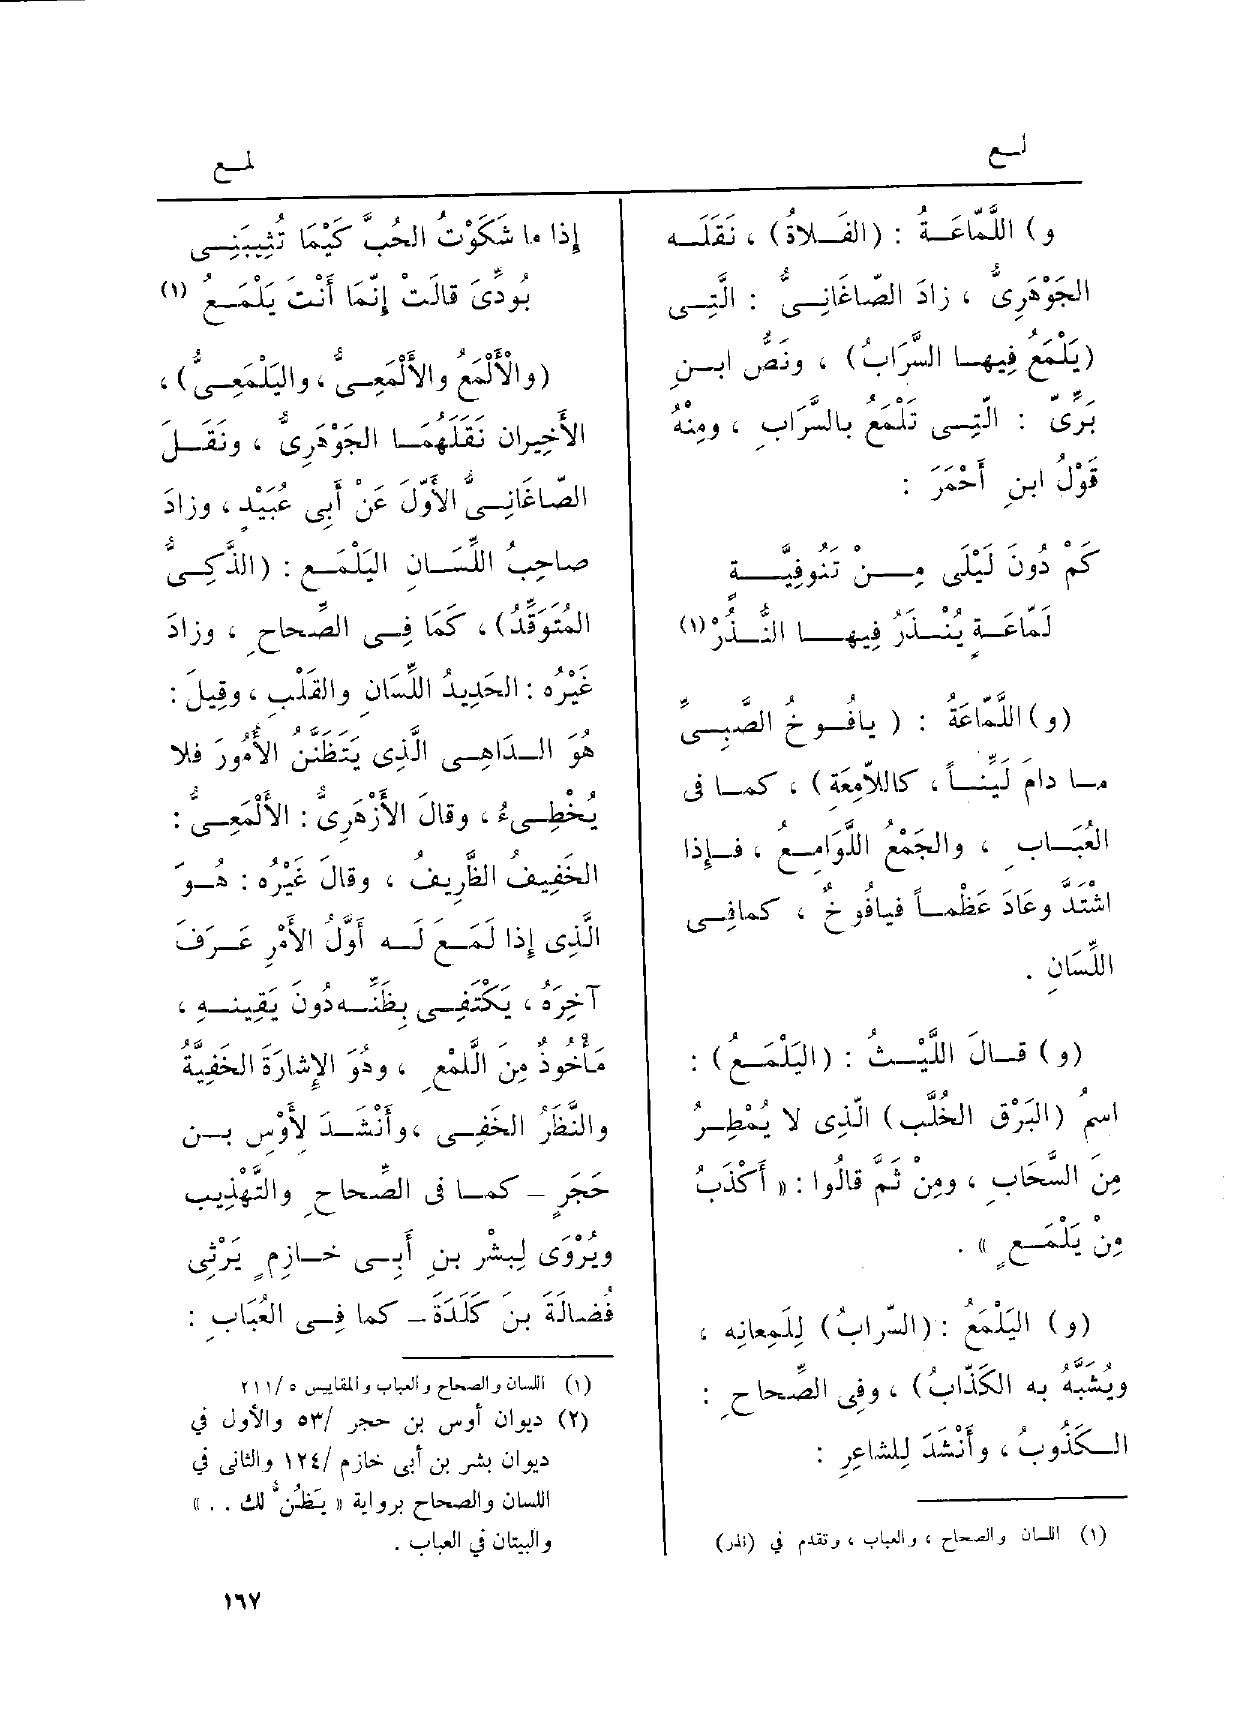 لمع
لمع
و) اللَّمّاعَةُ : (الفَلاةُ) ، نَقَلَه
الجَوْهَرِىُّ ، زادَ الصّاغَانِىُّ : الَّتِى
(يَلْمَعُ فِيها السَّرَابُ) ، ونَصُّ ابنِ
بَرِّىّ : الَّتِى تَلْمَعُ بالسَّرَابِ ، ومِنْهُ
قَوْلُ ابنِ أَحْمَرَ :
كَمْ دُونَ لَيْلَى مِنْ تَنُوفِيَّةٍ
لَمّاعَةٍ يُنْذَرُ فِيها النُّذُرْ (١)
(و) اللَّمّاعَةُ : ( يافُوخُ الصَّبِىِّ
ما دامَ لَيِّناً ، كاللاّمِعَةِ) ، كما فى
العُبَابِ ، والجَمْعُ اللَّوَامِعُ ، فإِذا
اشْتَدَّ وعَادَ عَظْماً فيافُوخٌ ، كمافِى
اللِّسَانِ .
(و) قالَ اللَّيْثُ : (اليَلْمَعُ) :
اسمُ (البَرْقِ الخُلَّبِ) الَّذِى لا يُمْطِرُ
مِنَ السَّحَابِ ، ومِنْ ثَمَّ قالُوا : « أَكْذَبُ
مِنْ يَلْمَعٍ » .
(و) اليَلْمَعُ : (السَّرابُ) لِلَمِعانِه ،
ويُشَبَّهُ به الكَذّابُ) ، وفِى الصِّحاحِ :
الكَذُوبُ ، وأَنْشَدَ لِلشاعِرِ :
(١) اللسان والصحاح ، والعباب ، وتقدم في (نذر)
إِذا ما شَكَوْتُ الحُبَّ كَيْمَا تُثِيبَنِى
بُودِّىَ قالَتْ إِنَّمَا أَنْتَ يَلْمَعُ (١)
(والأَلْمَعُ والأَلْمَعِىُّ ، واليَلْمَعِىُّ) ،
الأَخيران نَقَلَهُمَا الجَوْهَرِىُّ ، ونَقَلَ
الصّاغَانِىُّ الأَوَّلَ عَنْ أَبِى عُبَيْدٍ ، وزادَ
صاحِبُ اللِّسَانِ اليَلْمَع : (الذَّكِىُّ
المُتَوَقِّدُ) ، كَمَا فِى الصِّحاحِ ، وزادَ
غَيْرُه : الحَدِيدُ اللِّسَانِ والقَلْبِ ، وقِيلَ :
هُوَ الدَاهِى الَّذِى يَتَظَنَّنُ الأُمُورَ فلا
يُخْطِىءُ ، وقالَ الأَزْهَرِىُّ : الأَلْمَعِىُّ :
الخَفِيفُ الظَّرِيفُ ، وقالَ غَيْرُه : هُوَ
الَّذِى إِذا لَمَعَ لَه أَوَّلُ الأَمْرِ عَرَفَ
آخِرَهُ ، يَكْتَفِى بِظَنِّه دُونَ يَقِينهِ ،
مَأْخُوذٌ مِنَ اللَّمْعِ ، وهُوَ الإِشارَةُ الخَفِيَّةُ
والنَّظَرُ الخَفِى ، وأَنْشَدَ لِأَوْسِ بن
حَجَرٍ – كما فى الصِّحاحِ والتَّهْذِيبِ
ويُرْوَى لِبِشْرِ بنِ أَبِى خازِمٍ يَرْثِى
فُضالَةَ بنَ كَلَدَةَ – كما فِى العُبَابِ :
(١) اللسان والصحاح والعباب والمقاييس ٥ /٢١١
(٢) ديوان أوس بن حجر /٥٣ والأول في
ديوان بشر بن أبى خازم /١٢٤ والثانى في
اللسان والصحاح برواية « يَظُنُّ لك . . »
والبيتان في العباب .
١٦٧